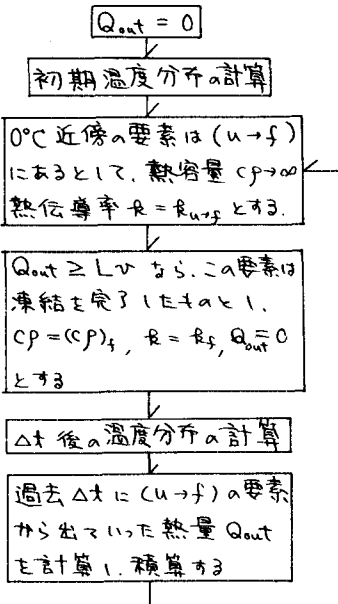 Qout = 0
初期温度分布の計算
0℃近傍の要素は(u→f)
にあるとして、熱容量 cρ→∞
熱伝導率 k = ku→f とする.
Qout ≥ Lv なら、この要素は
凍結を完了したものとし、
cρ=(cρ)f, k = kf, Qout=0
とする
Δt 後の温度分布の計算
過去 Δt に (u→f) の要素
から出ていった熱量 Qout
を計算し、積算する